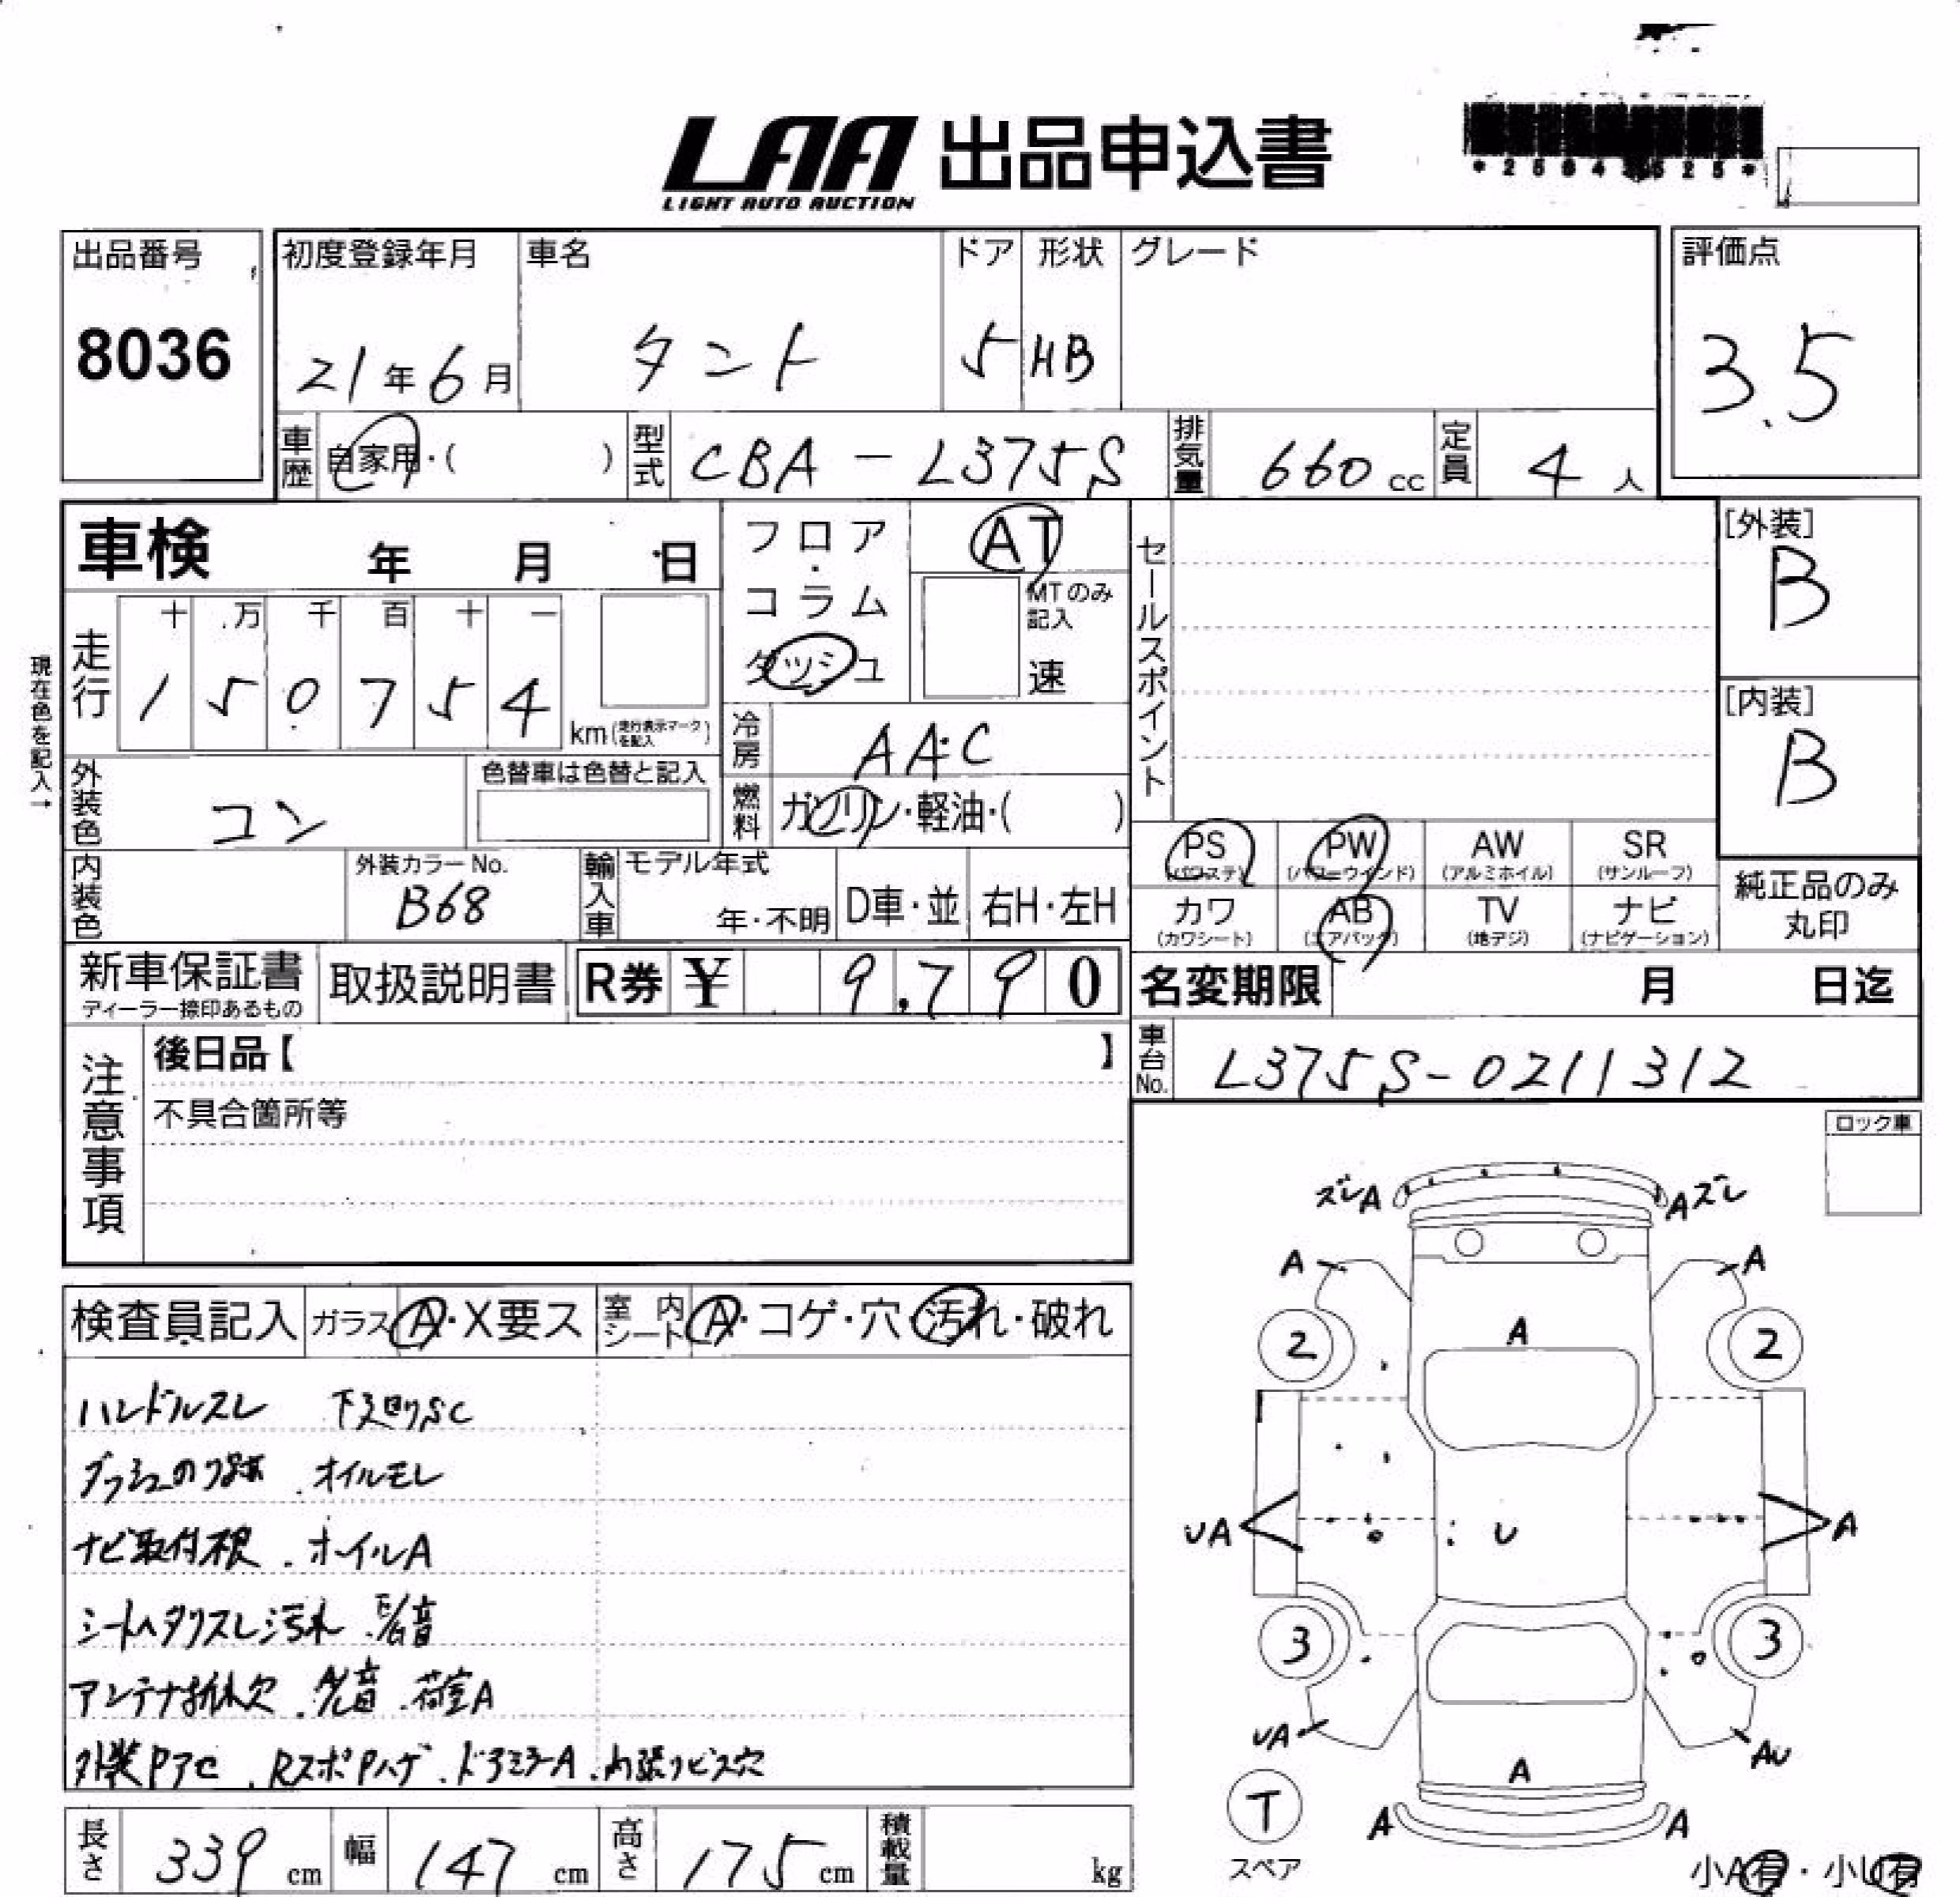 LAA 出品申込書
LIGHT AUTO AUCTION
出品番号
8036
初度登録年月 車名 ドア 形状 グレード
21年6月 タント 5 HB
評価点
3.5
車歴 自家用・( ) 型式 CBA-L375S 排気量 660cc 定員 4人
車検 年 月 日
フロア・コラム ダッシュ
AT
MTのみ記入
速
セールスポイント
[外装]
B
[内装]
B
現在色を記入→
走行
十 万 千 百 十 一
1 5 0 7 5 4
km (走行表示マークを記入)
冷房 AAC
燃料 ガソリン・軽油・( )
外装色 コン
色替車は色替と記入
内装色
外装カラーNo.
B68
輸入車
モデル年式
年・不明
D車・並 右H・左H
PS (パワステ) PW (パワーウインド) AW (アルミホイル) SR (サンルーフ)
カワ (カワシート) AB (エアバッグ) TV (地デジ) ナビ (ナビゲーション)
純正品のみ丸印
新車保証書
ディーラー捺印あるもの
取扱説明書
R券 ¥ 9,790
名変期限 月 日迄
車台No. L375S-0211312
注意事項
後日品【 】
不具合箇所等
ロック車
検査員記入 ガラス A・X要ス 室内シート A・コゲ・穴・汚れ・破れ
ハンドルスレ 下廻りSC
ダッシュのり跡 . オイルモレ
ナビ取付痕 . ホイルA
シートヘタリスレ汚れ
アンテナ 欠 . 荷室A
外装Pアセ . RスポPハゲ . ドアミラーA . 内張りビス穴
ズレA Aズレ
A A
2 A 2
UA U A
3 3
UA AU
A
T A A
スペア
小A有・小U有
長さ 339cm 幅 147cm 高さ 175cm 積載量 kg